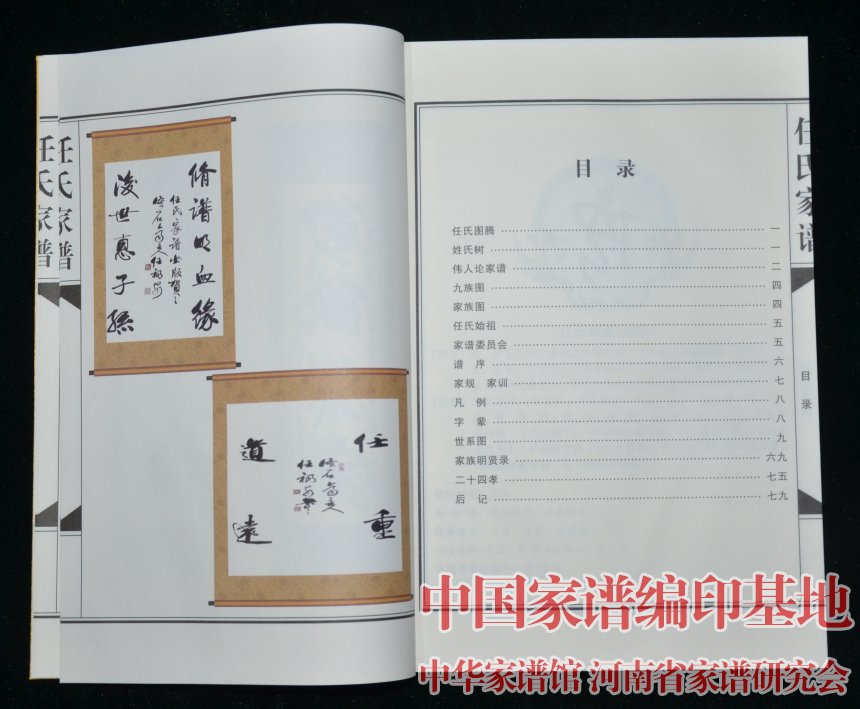 任氏家谱
任氏家谱
修谱明血缘
任氏家谱出版贺
后世惠子孙
任重
道远
目 录
任氏图腾 一
姓氏树 一
伟人论家谱 二
九族图 四
家族图 四
任氏始祖 五
家谱委员会 五
谱 序 六
家规 家训 七
凡 例 八
字 辈 八
世系图 九
家族明贤录 六九
二十四孝 七五
后 记 七九
任氏家谱
目录
中国家谱编印基地
中华家谱馆 河南省家谱研究会